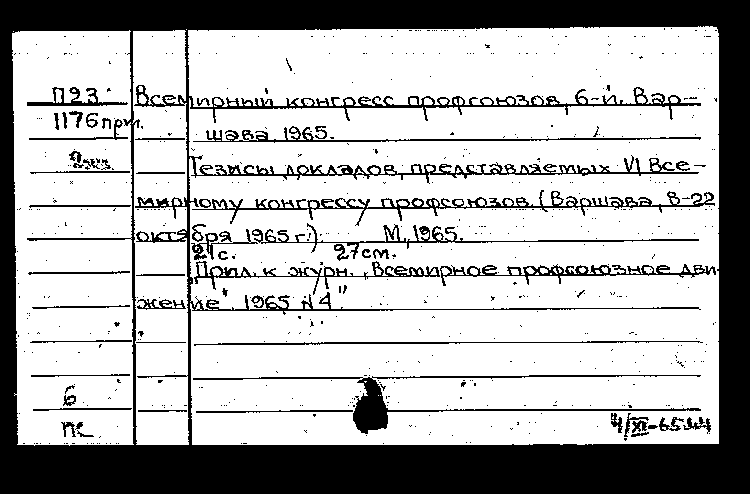 П23 Всемирный конгресс профсоюзов, 6-й. Вар-
1176прил. шава, 1965.
2экз. Тезисы докладов, представляемых VI Все-
мирному конгрессу профсоюзов. (Варшава, 8-22
октября 1965 г.). М., 1965.
21с. 27см.
"Прил. к журн. „Всемирное профсоюзное дви-
жение" 1965 №4"
6
пс 4/XI-65